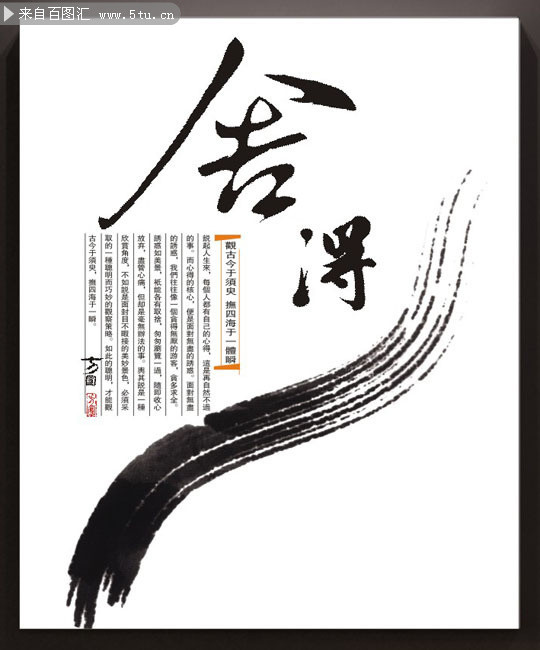 来自百图汇 www.5tu.cn
舍得
觀古今于須臾 撫四海于一體瞬
說起人生來，每個人都有自己的心得，這是再自然不過
的事。而心得的核心，便是面對無盡的誘惑。面對無盡
的誘惑，我們往往像一個貪得無厭的游客，貪多求全。
誘惑如美景，衹能各有取捨，匆匆瀏覽一過，隨即收心
放弃，盡管心痛，但却是毫無辦法的事。與其說是一種
欣賞角度，不如說是面封目不暇接的美妙景色，必須采
取的一種聰明而巧妙的觀察策略。如此的聰明，才能觀
古今于須臾，撫四海于一瞬。
方圓